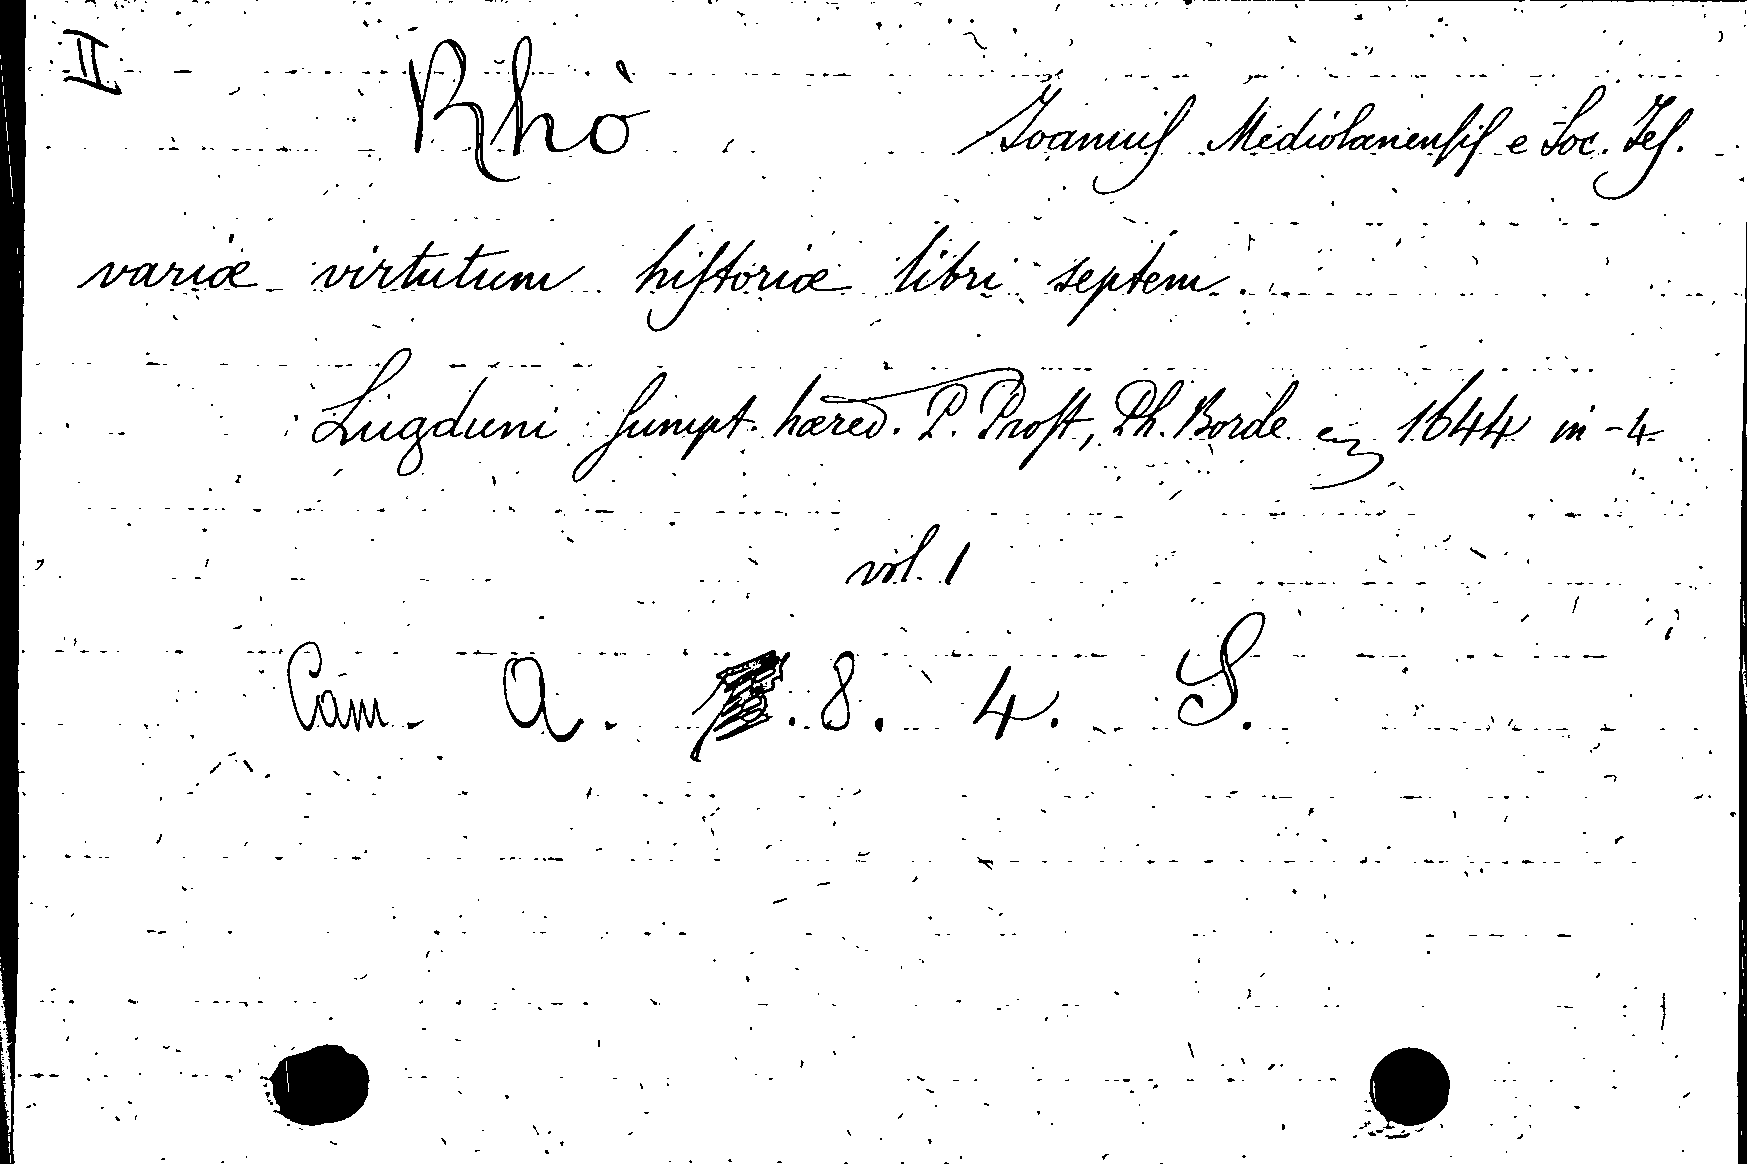 II
Rhò Joannis Mediolanensis e Soc. Jes.
variæ virtutum historiæ libri septem.
Lugduni sumpt. hæred. P. Prost, Ph. Borde 1644 in-4
vol. 1
Cam. A. 8. 4. S.